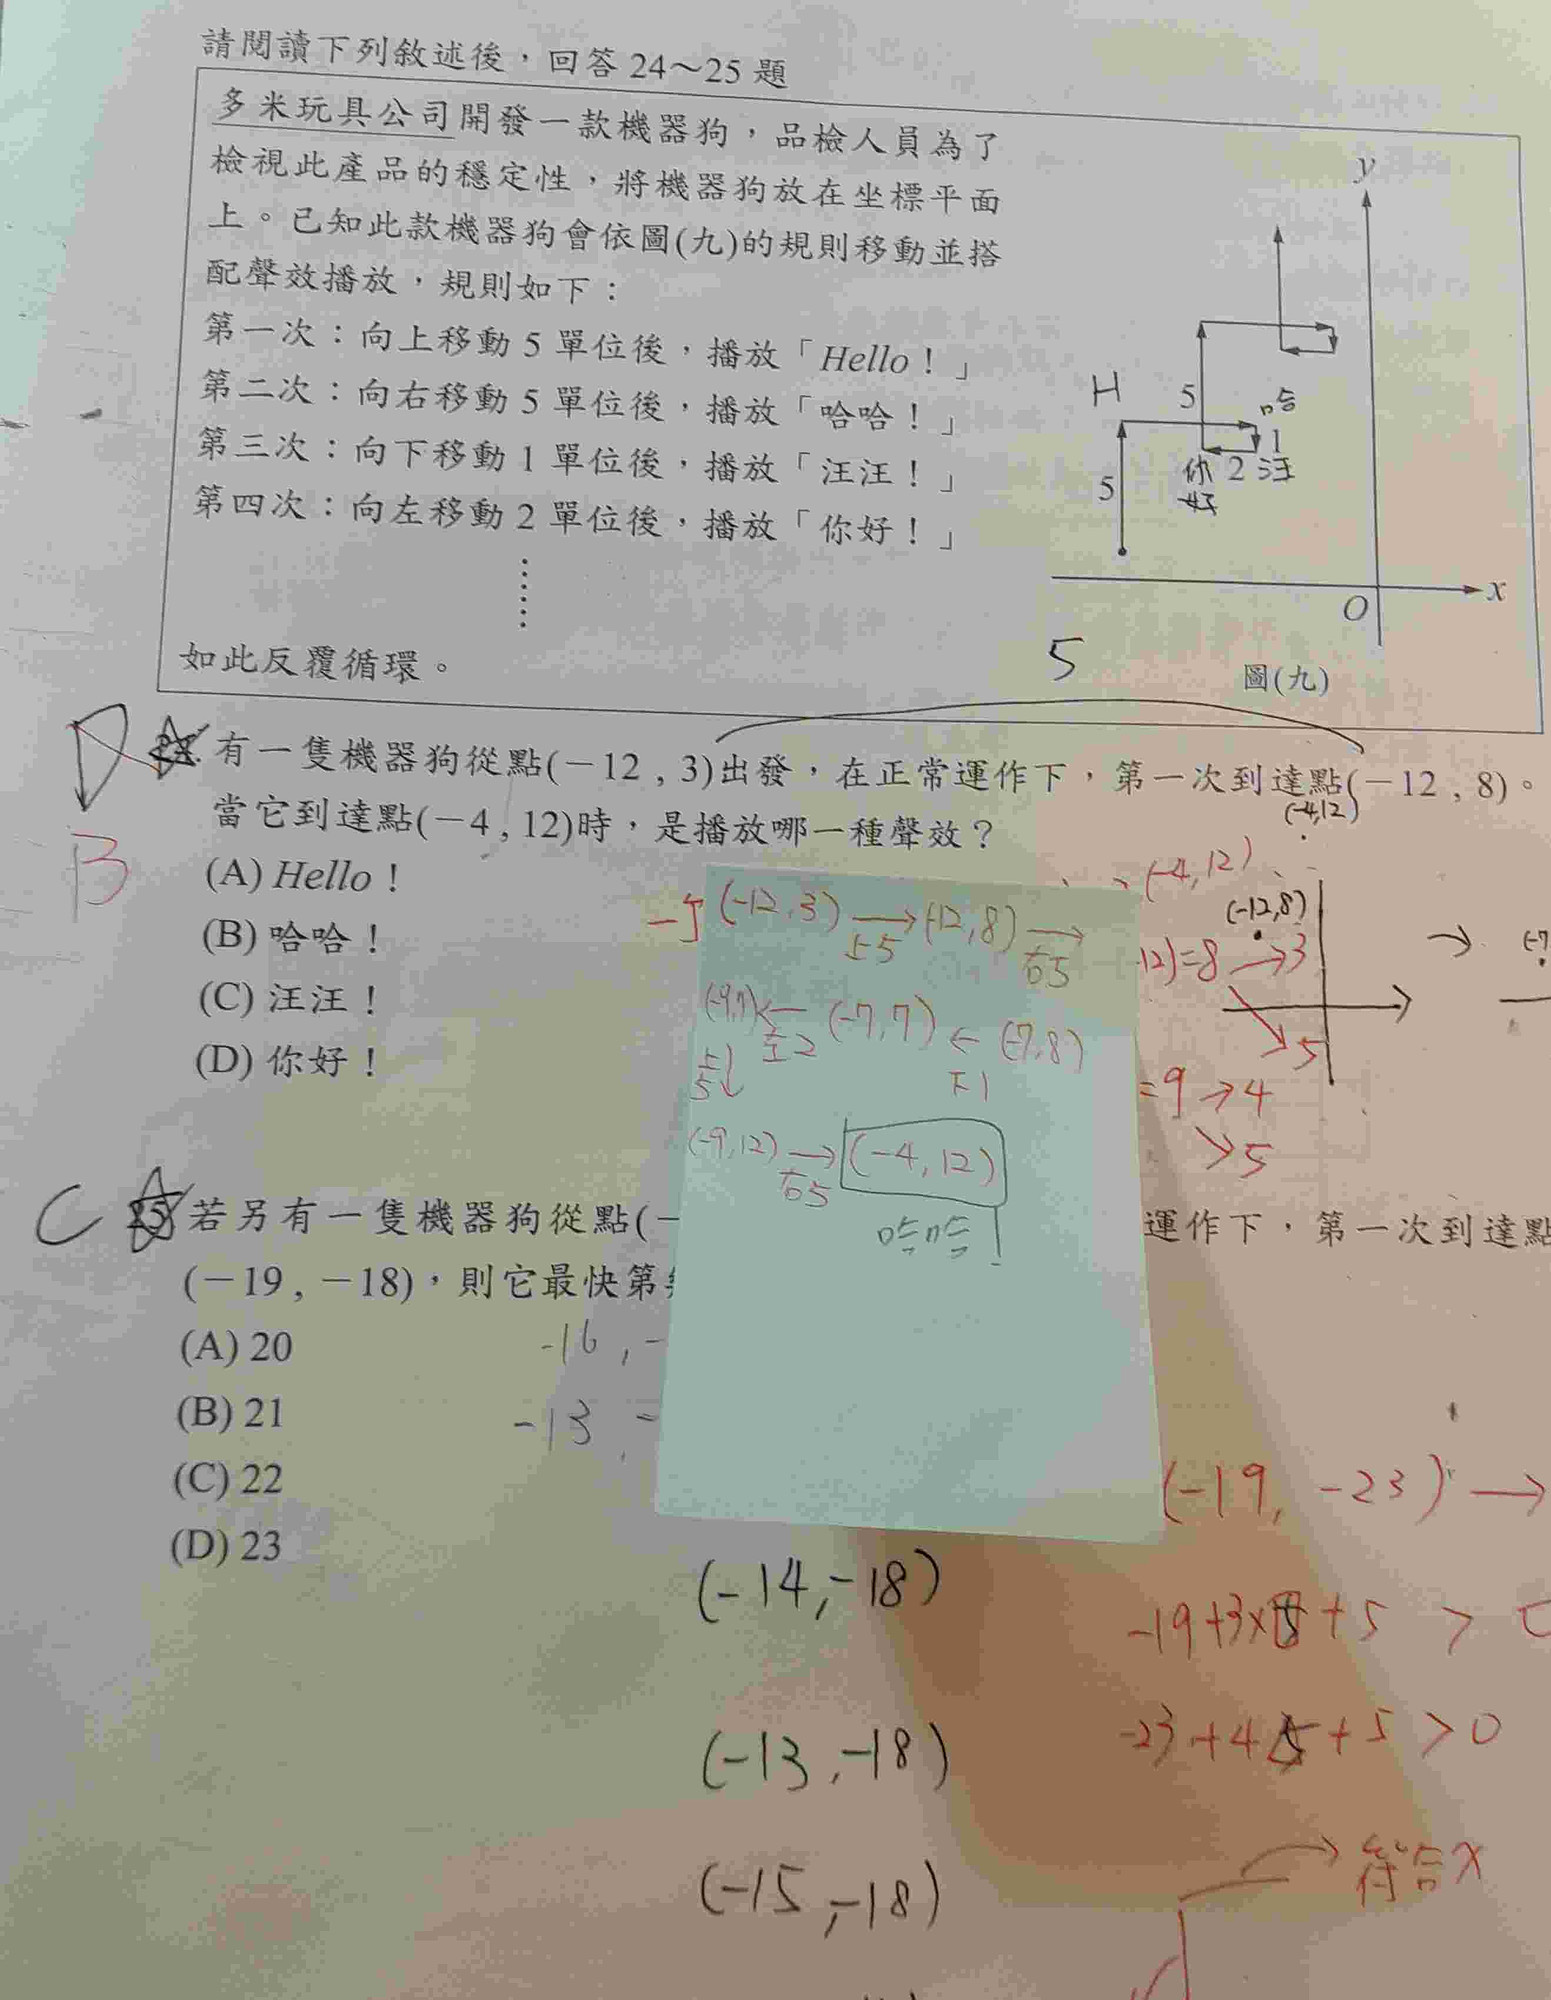 請閱讀下列敘述後，回答 24～25 題
多米玩具公司開發一款機器狗，品檢人員為了
檢視此產品的穩定性，將機器狗放在坐標平面
上。已知此款機器狗會依圖(九)的規則移動並搭
配聲效播放，規則如下：
第一次：向上移動 5 單位後，播放「Hello！」
第二次：向右移動 5 單位後，播放「哈哈！」
第三次：向下移動 1 單位後，播放「汪汪！」
第四次：向左移動 2 單位後，播放「你好！」
⋮
如此反覆循環。
y
H
5
哈
1
你好
2
汪
5
x
O
5
圖(九)
D
B
有一隻機器狗從點(－12 , 3)出發，在正常運作下，第一次到達點(－12 , 8)。
當它到達點(－4 , 12)時，是播放哪一種聲效？
(A) Hello！
(B) 哈哈！
(C) 汪汪！
(D) 你好！
(-4,12)
(-4,12)
(-12,8)
12)=8 → 3
5
=9 → 4
5
(-12,3) → 上5 (-12,8) → 右5
(-9,7) ← 左2 (-7,7) ← 下1 (-7,8)
上5↓
(-9,12) → 右5 (-4,12)
哈哈！
C
25 若另有一隻機器狗從點(－
運作下，第一次到達點
(－19 , －18)，則它最快第
(A) 20
(B) 21
(C) 22
(D) 23
-16 , -
-13
(-19, -23) →
(-14,-18)
(-13,-18)
(-15,-18)
+5 >
+5 > 0
符合x